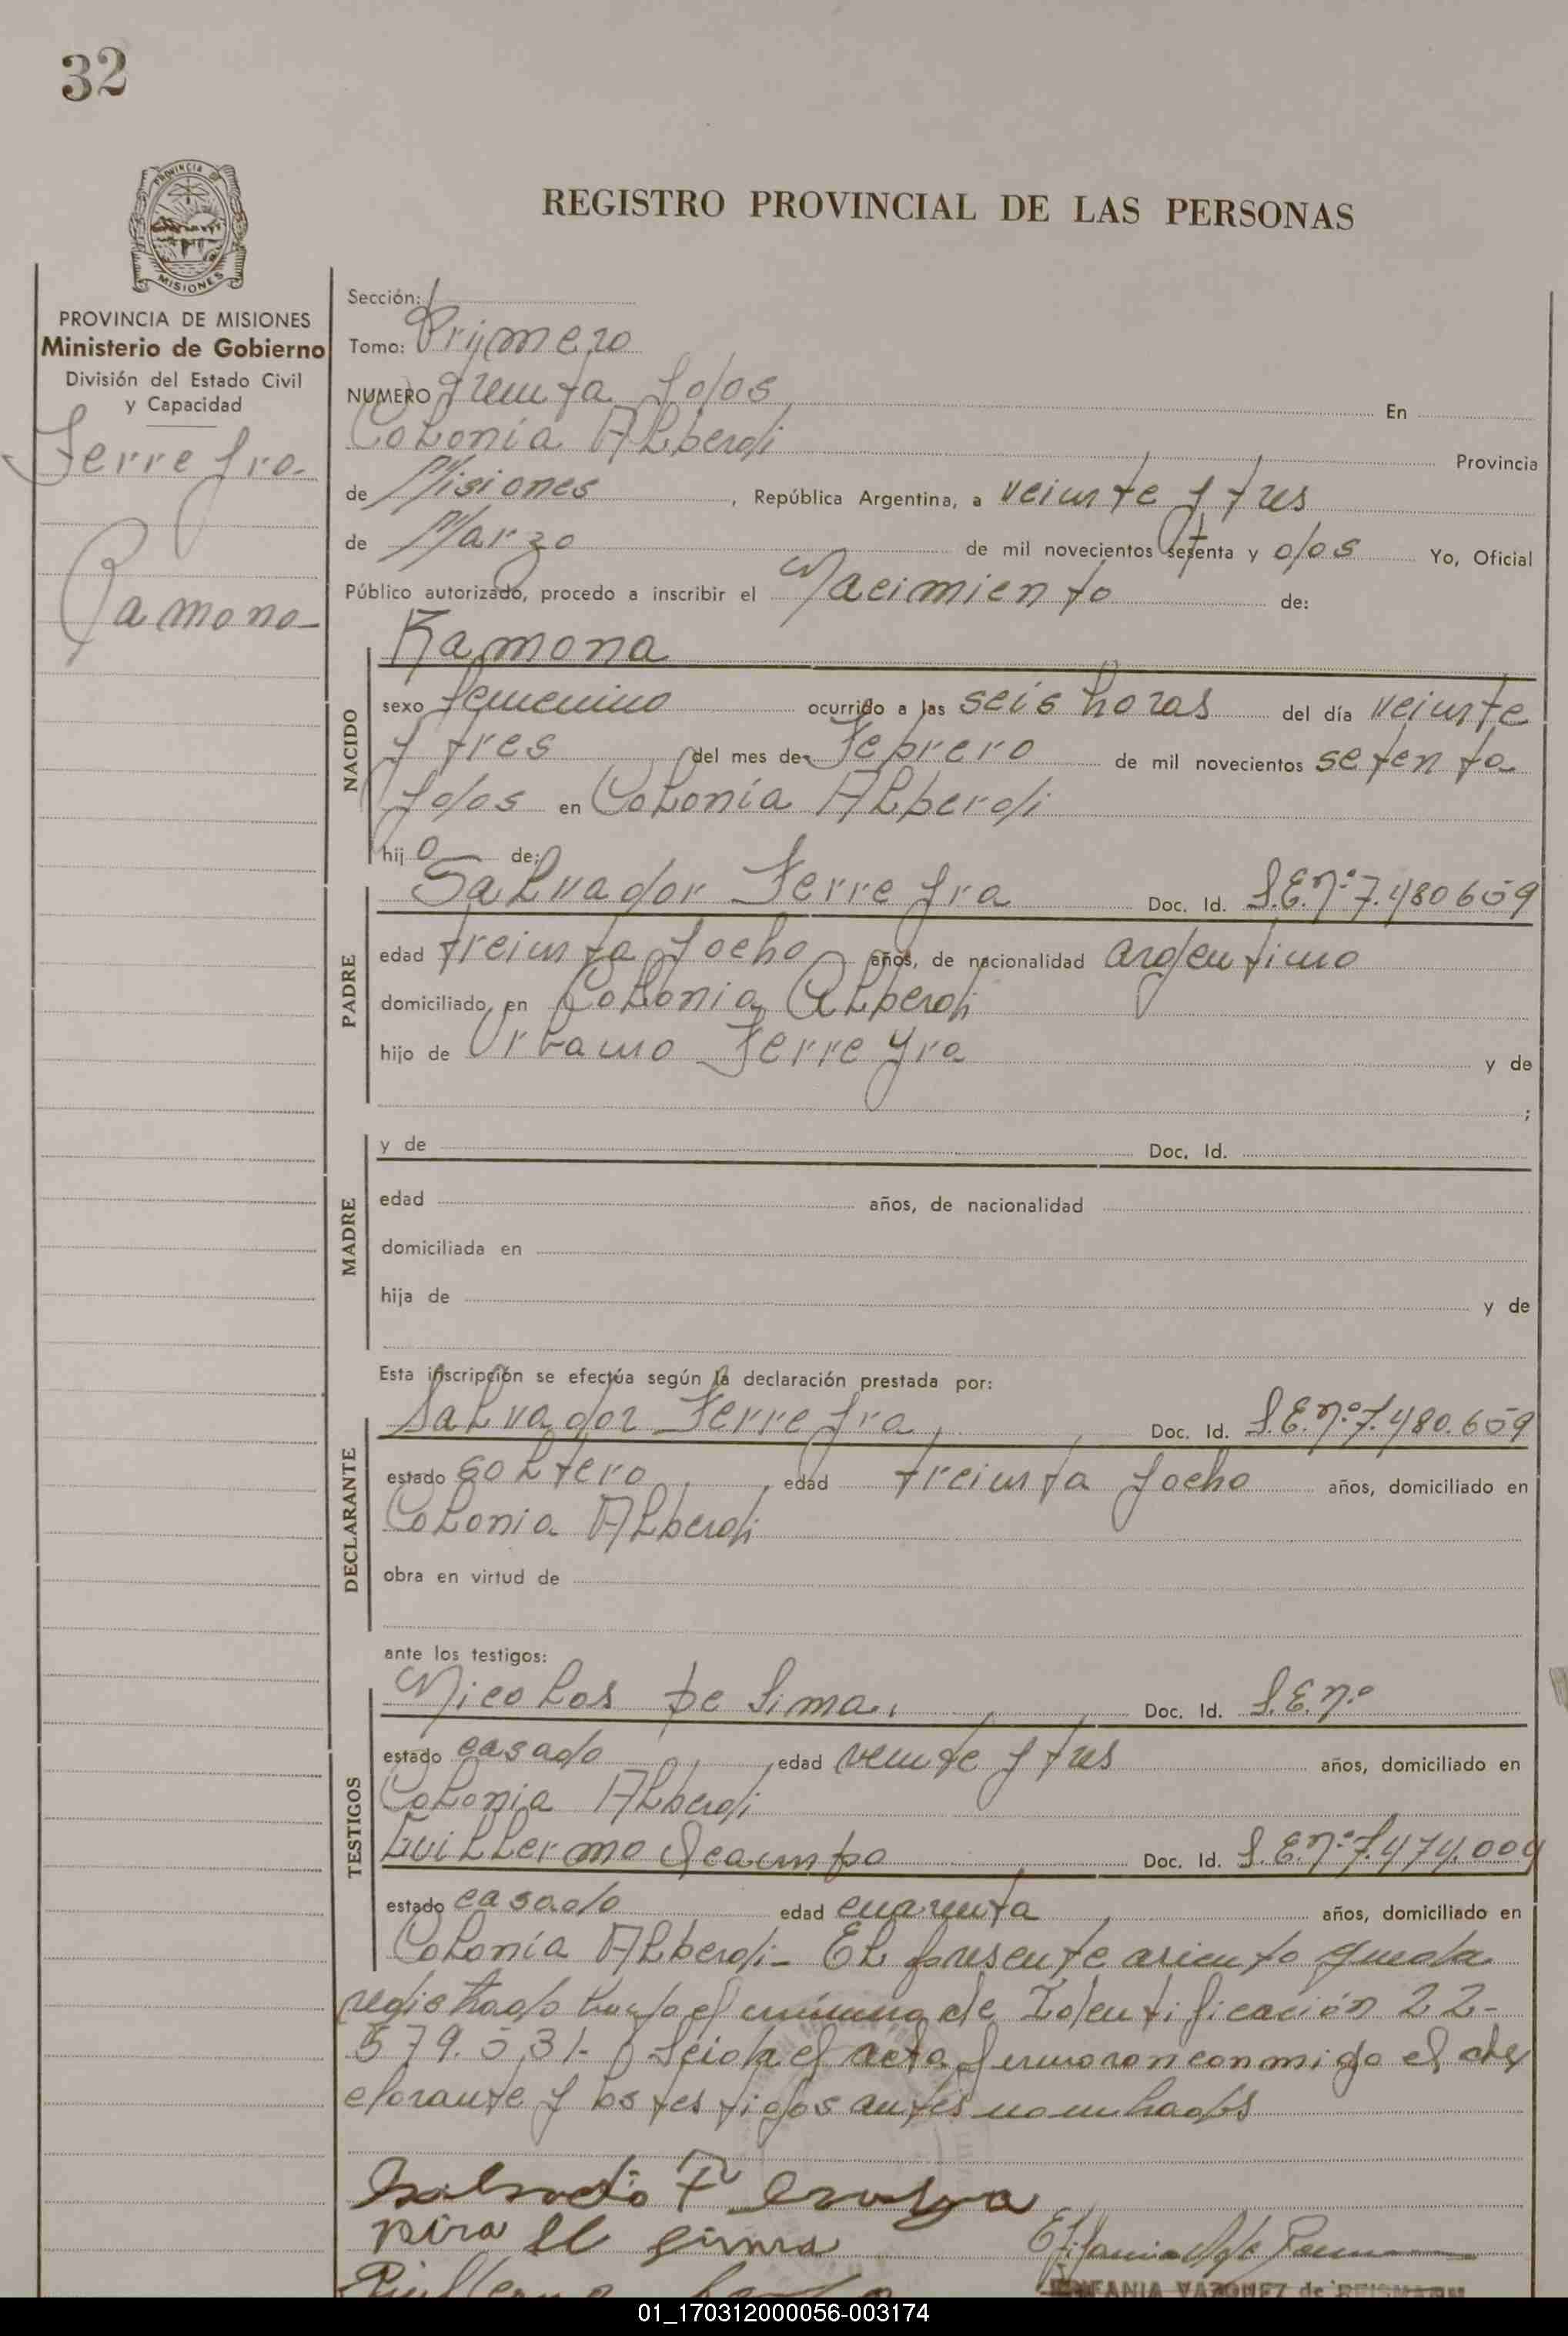 32
PROVINCIA DE
MISIONES
REGISTRO PROVINCIAL DE LAS PERSONAS
PROVINCIA DE MISIONES
Ministerio de Gobierno
División del Estado Civil
y Capacidad
Ferreyra
Ramona
Sección:
Tomo: Primero
NUMERO treinta y dos En
Colonia Alberdi Provincia
de Misiones, República Argentina, a veinte y tres
de Marzo de mil novecientos setenta y dos Yo, Oficial
Público autorizado, procedo a inscribir el Nacimiento de:
NACIDO
Ramona
sexo femenino ocurrido a las seis horas del día veinte
y tres del mes de Febrero de mil novecientos setenta
y dos en Colonia Alberdi
hij a de:
PADRE
Salvador Ferreyra Doc. Id. L.E.nº 7.480659
edad treinta y ocho años, de nacionalidad argentino
domiciliado en Colonia Alberdi
hijo de Urbano Ferreyra y de
;
MADRE
y de Doc. Id.
edad años, de nacionalidad
domiciliada en
hija de y de
Esta inscripción se efectúa según la declaración prestada por:
DECLARANTE
Salvador Ferreyra, Doc. Id. L.E.nº 7.480.659
estado soltero edad treinta y ocho años, domiciliado en
Colonia Alberdi
obra en virtud de
ante los testigos:
TESTIGOS
Nicolas De Lima, Doc. Id. L.E.nº
estado casado edad veinte y tres años, domiciliado en
Colonia Alberdi
Guillermo Ocampo Doc. Id. L.E.nº 7.474.009
estado casado edad cuarenta años, domiciliado en
Colonia Alberdi- El presente asiento queda
registrado bajo el número de Identificación 22-
579.531- Leida el acta firmaron conmigo el de
clarante y los testigos antes nombrados
EPIFANIA VAZQUEZ de
01_170312000056-003174